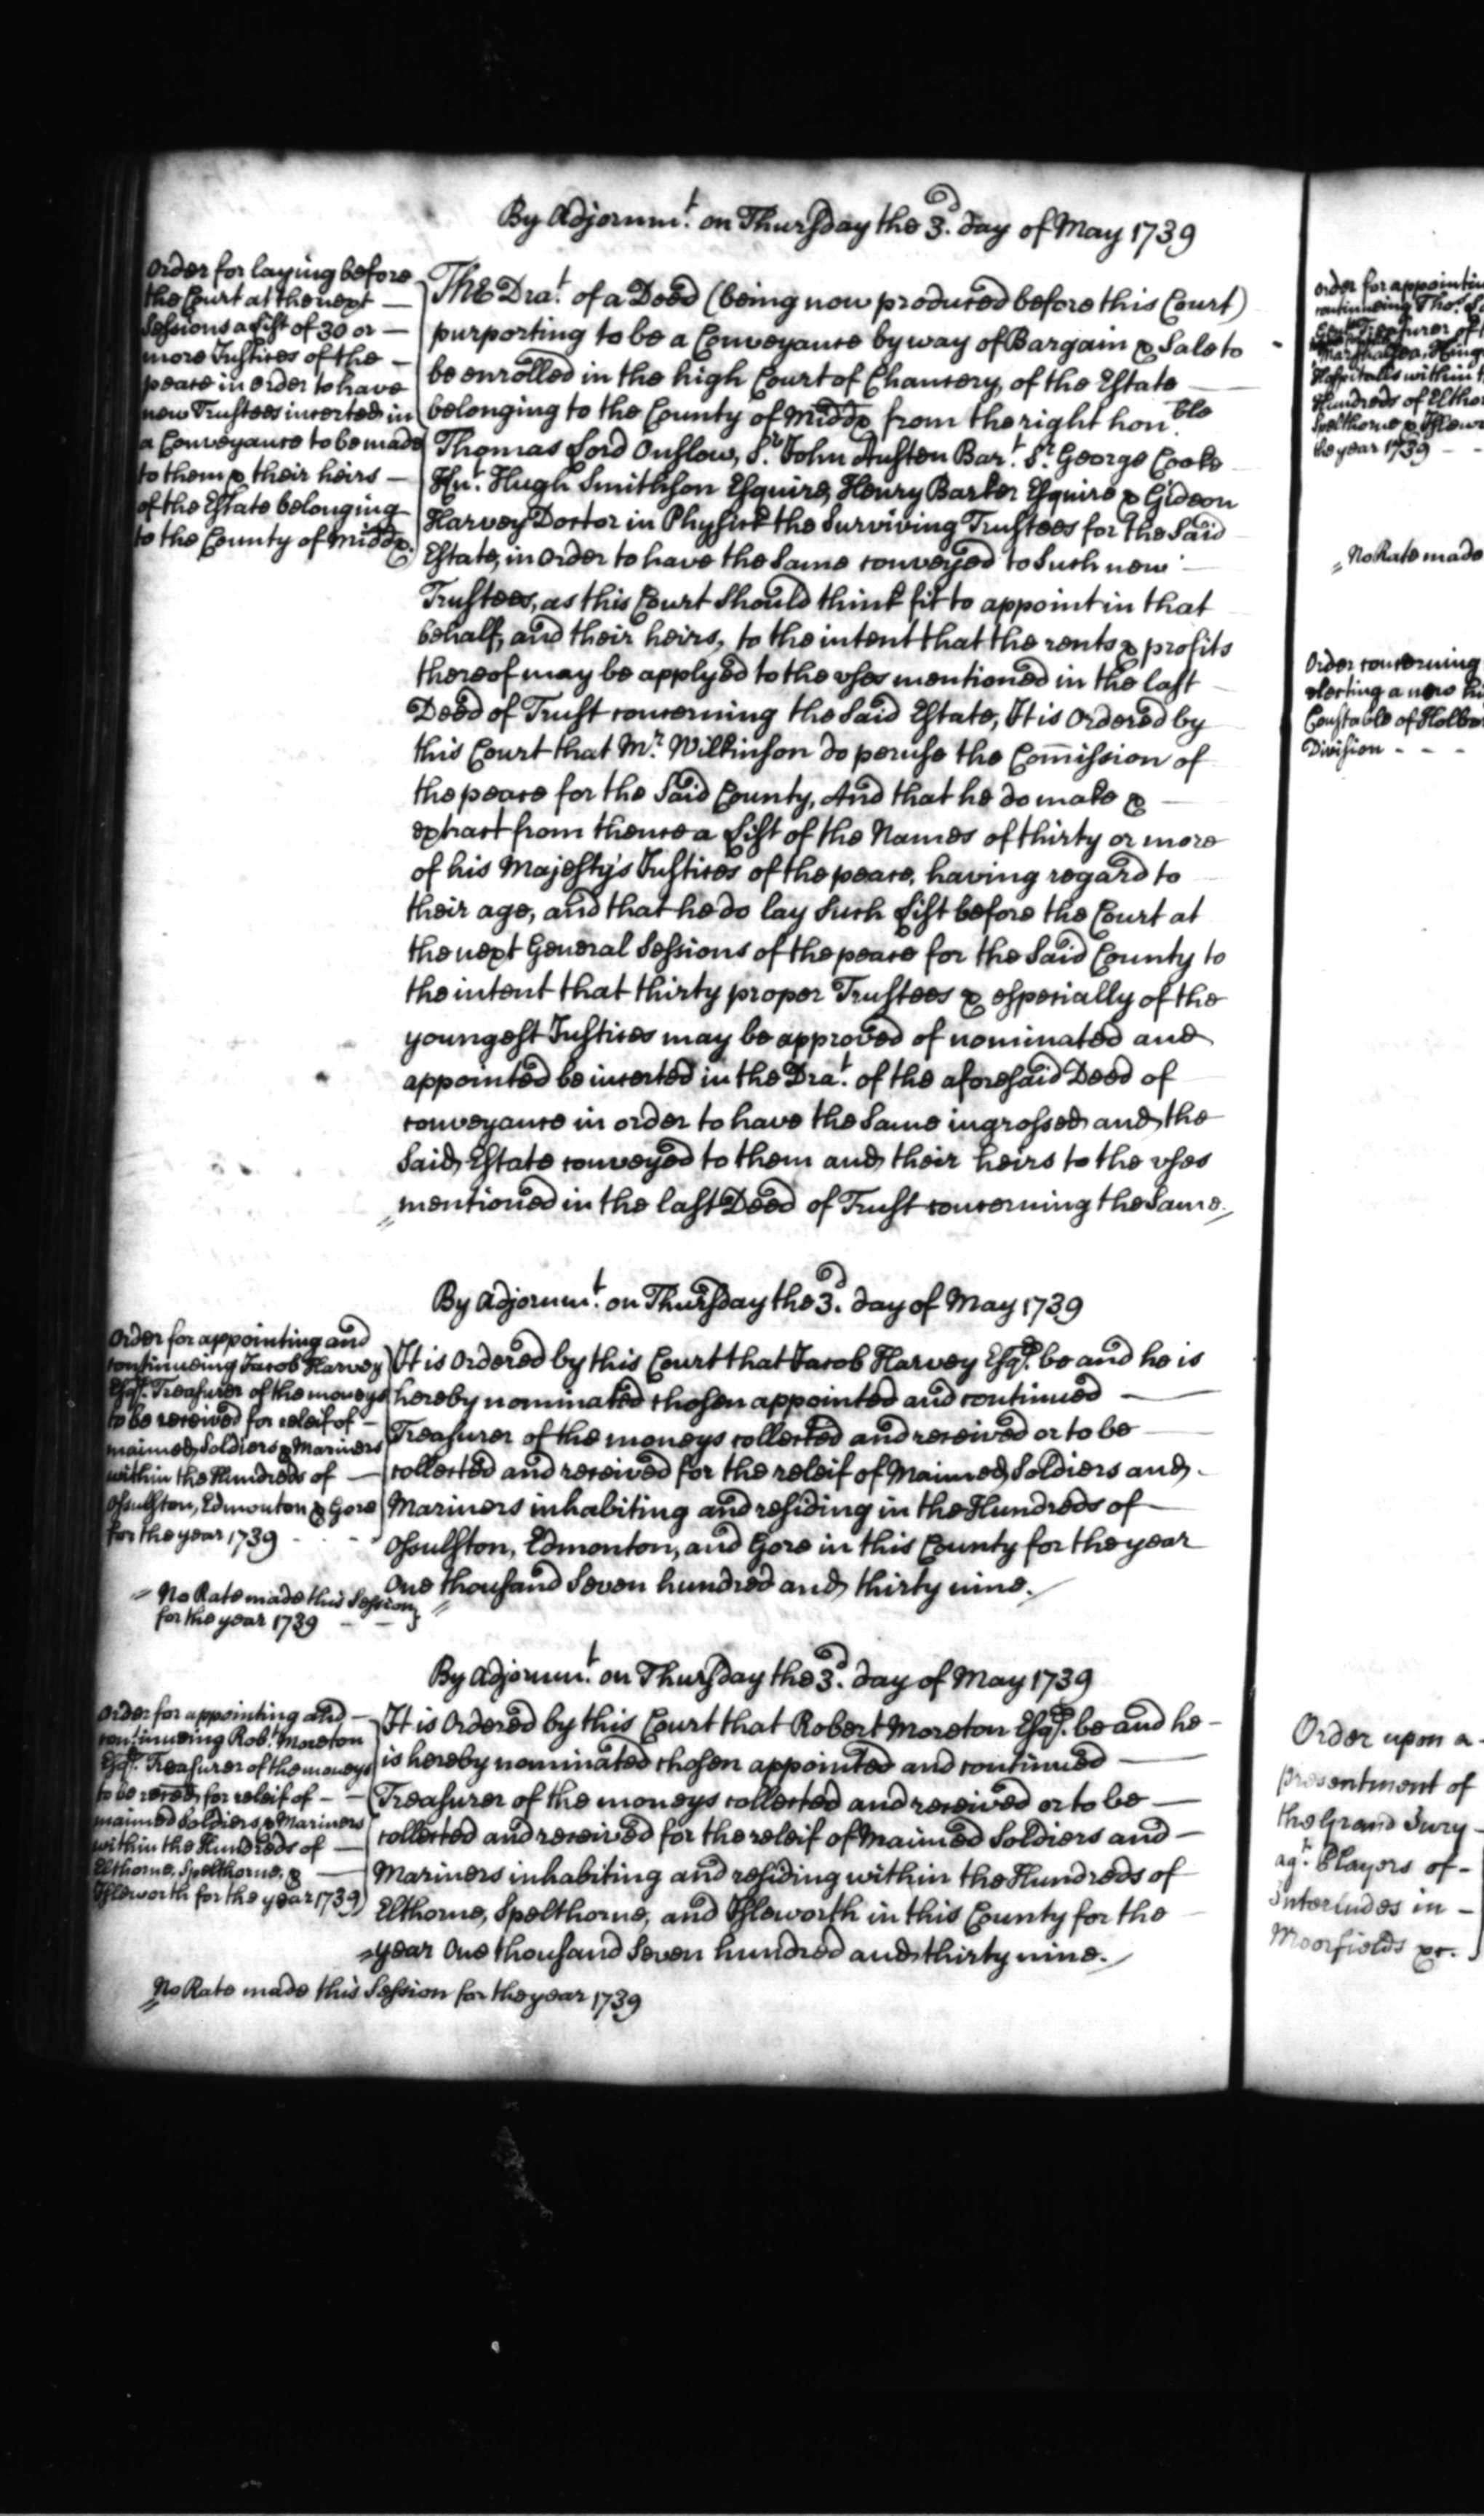 By Adjornmt. on Thursday the 3d. day of May 1739
Order for laying before
the Court at the next
Sessions a List of 30 or
more Justices of the
peace in order to have
new Trustees inserted in
a Conveyance to be made
to them & their heirs
of the Estate belonging
to the County of Middx.
The Drat. of a Deed (being now produced before this Court)
purporting to be a Conveyance by way of Bargain & Sale to
be enrolled in the high Court of Chancery, of the Estate
belonging to the County of Middx from the right honble.
Thomas Lord Onslow, Sr. John Austen Bart. Sr. George Cooke
Knt. Hugh Smithson Esquire, Henry Barker Esquire & Gideon
Harvey Doctor in Physick the Surviving Trustees for the Said
Estate, in order to have the Same conveyed to Such new
Trustees, as this Court Should think fit to appoint in that
behalf, and their heirs, to the intent that the rents & profits
thereof may be applyed to the uses mentioned in the last
Deed of Trust concerning the Said Estate, It is Ordered by
this Court that Mr. Wilkinson do peruse the Comission of
the peace for the Said County, And that he do make &
extract from thence a List of the Names of thirty or more
of his Majesty's Justices of the peace, having regard to
their age, and that he do lay Such List before the Court at
the next General Sessions of the peace for the Said County to
the intent that thirty proper Trustees & especially of the
youngest Justices may be approved of nominated and
appointed be inserted in the Drat. of the aforesaid Deed of
conveyance in order to have the Same ingrossed and the
Said Estate conveyed to them and their heirs to the uses
mentioned in the last Deed of Trust concerning the Same.
By Adjornmt. on Thursday the 3d. day of May 1739
Order for appointing and
continueing Jacob Harvey
Esqr. Treasurer of the moneys
to be received for releif of
maimed Soldiers & Mariners
within the Hundreds of
Ossulston, Edmonton & Gore
for the year 1739
It is Ordered by this Court that Jacob Harvey Esqr. be and he is
hereby nominated chosen appointed and continued
Treasurer of the moneys collected and received or to be
collected and received for the releif of Maimed Soldiers and
Mariners inhabiting and residing in the Hundreds of
Ossulston, Edmonton, and Gore in this County for the year
One thousand Seven hundred and thirty nine.
No Rate made this Session
for the year 1739
By Adjornmt. on Thursday the 3d. day of May 1739
Order for appointing and
continueing Robt. Moreton
Esqr. Treasurer of the moneys
to be reced for releif of
maimed Soldiers & Mariners
within the Hundreds of
Elthorne, Spelthorne, &
Isleworth for the year 1739
It is Ordered by this Court that Robert Moreton Esqr. be and he
is hereby nominated chosen appointed and continued
Treasurer of the moneys collected and received or to be
collected and received for the releif of Maimed Soldiers and
Mariners inhabiting and residing within the Hundreds of
Elthorne, Spelthorne, and Isleworth in this County for the
year One thousand Seven hundred and thirty nine.
No Rate made this Session for the year 1739
Order for
continueing Thos.
Treasurer of
Marshalsea, King
Hospitalls within
Hundreds of
Spelthorne &
the year 1739
No Rate made
Order concerning
electing a new
Constable of
Division
Order upon a
presentment of
the Grand Jury
agt. Players of
Interludes in
Moorfields &c.